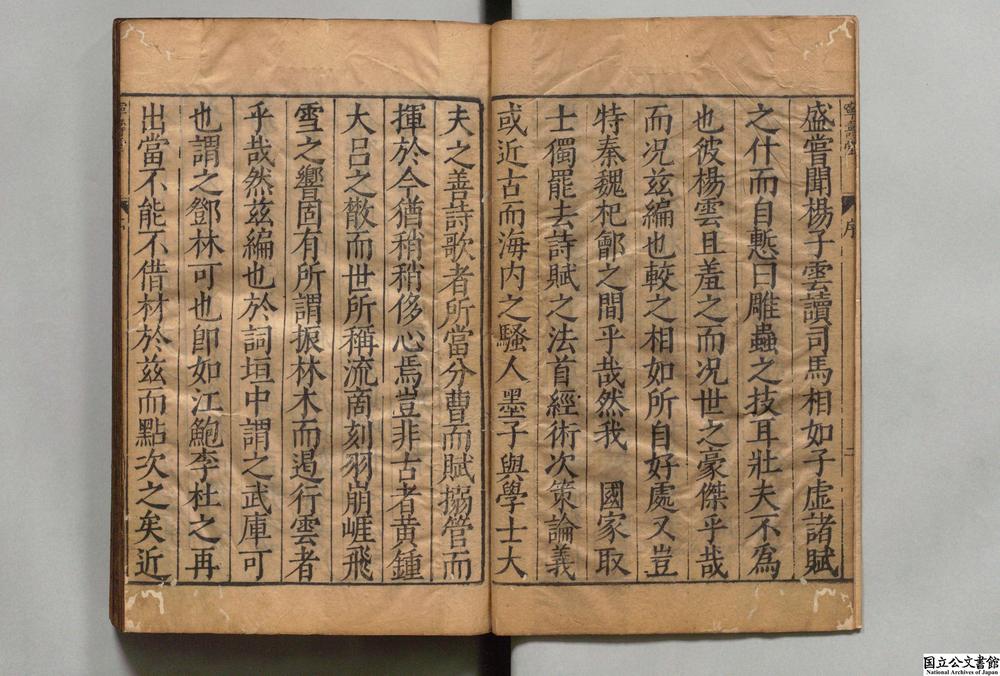 盛嘗聞楊子雲讀司馬相如子虛諸賦
之什而自慙曰雕蟲之技耳壯夫不為
也彼楊雲且羞之而況世之豪傑乎哉
而況茲編也較之相如所自好處又豈
特秦魏杞鄫之間乎哉然我　國家取
士獨罷去詩賦之法首經術次策論義
或近古而海内之騷人墨子與學士大
夫之善詩歌者所當分曹而賦搦管而
揮於今猶稍稍侈心焉豈非古者黃鍾
大呂之散而世所稱流商刻羽崩崕飛
雪之響固有所謂振林木而遏行雲者
乎哉然茲編也於詞垣中謂之武庫可
也謂之鄧林可也即如江鮑李杜之再
出當不能不借材於茲而點次之矣近
序
二
国立公文書館
National Archives of Japan